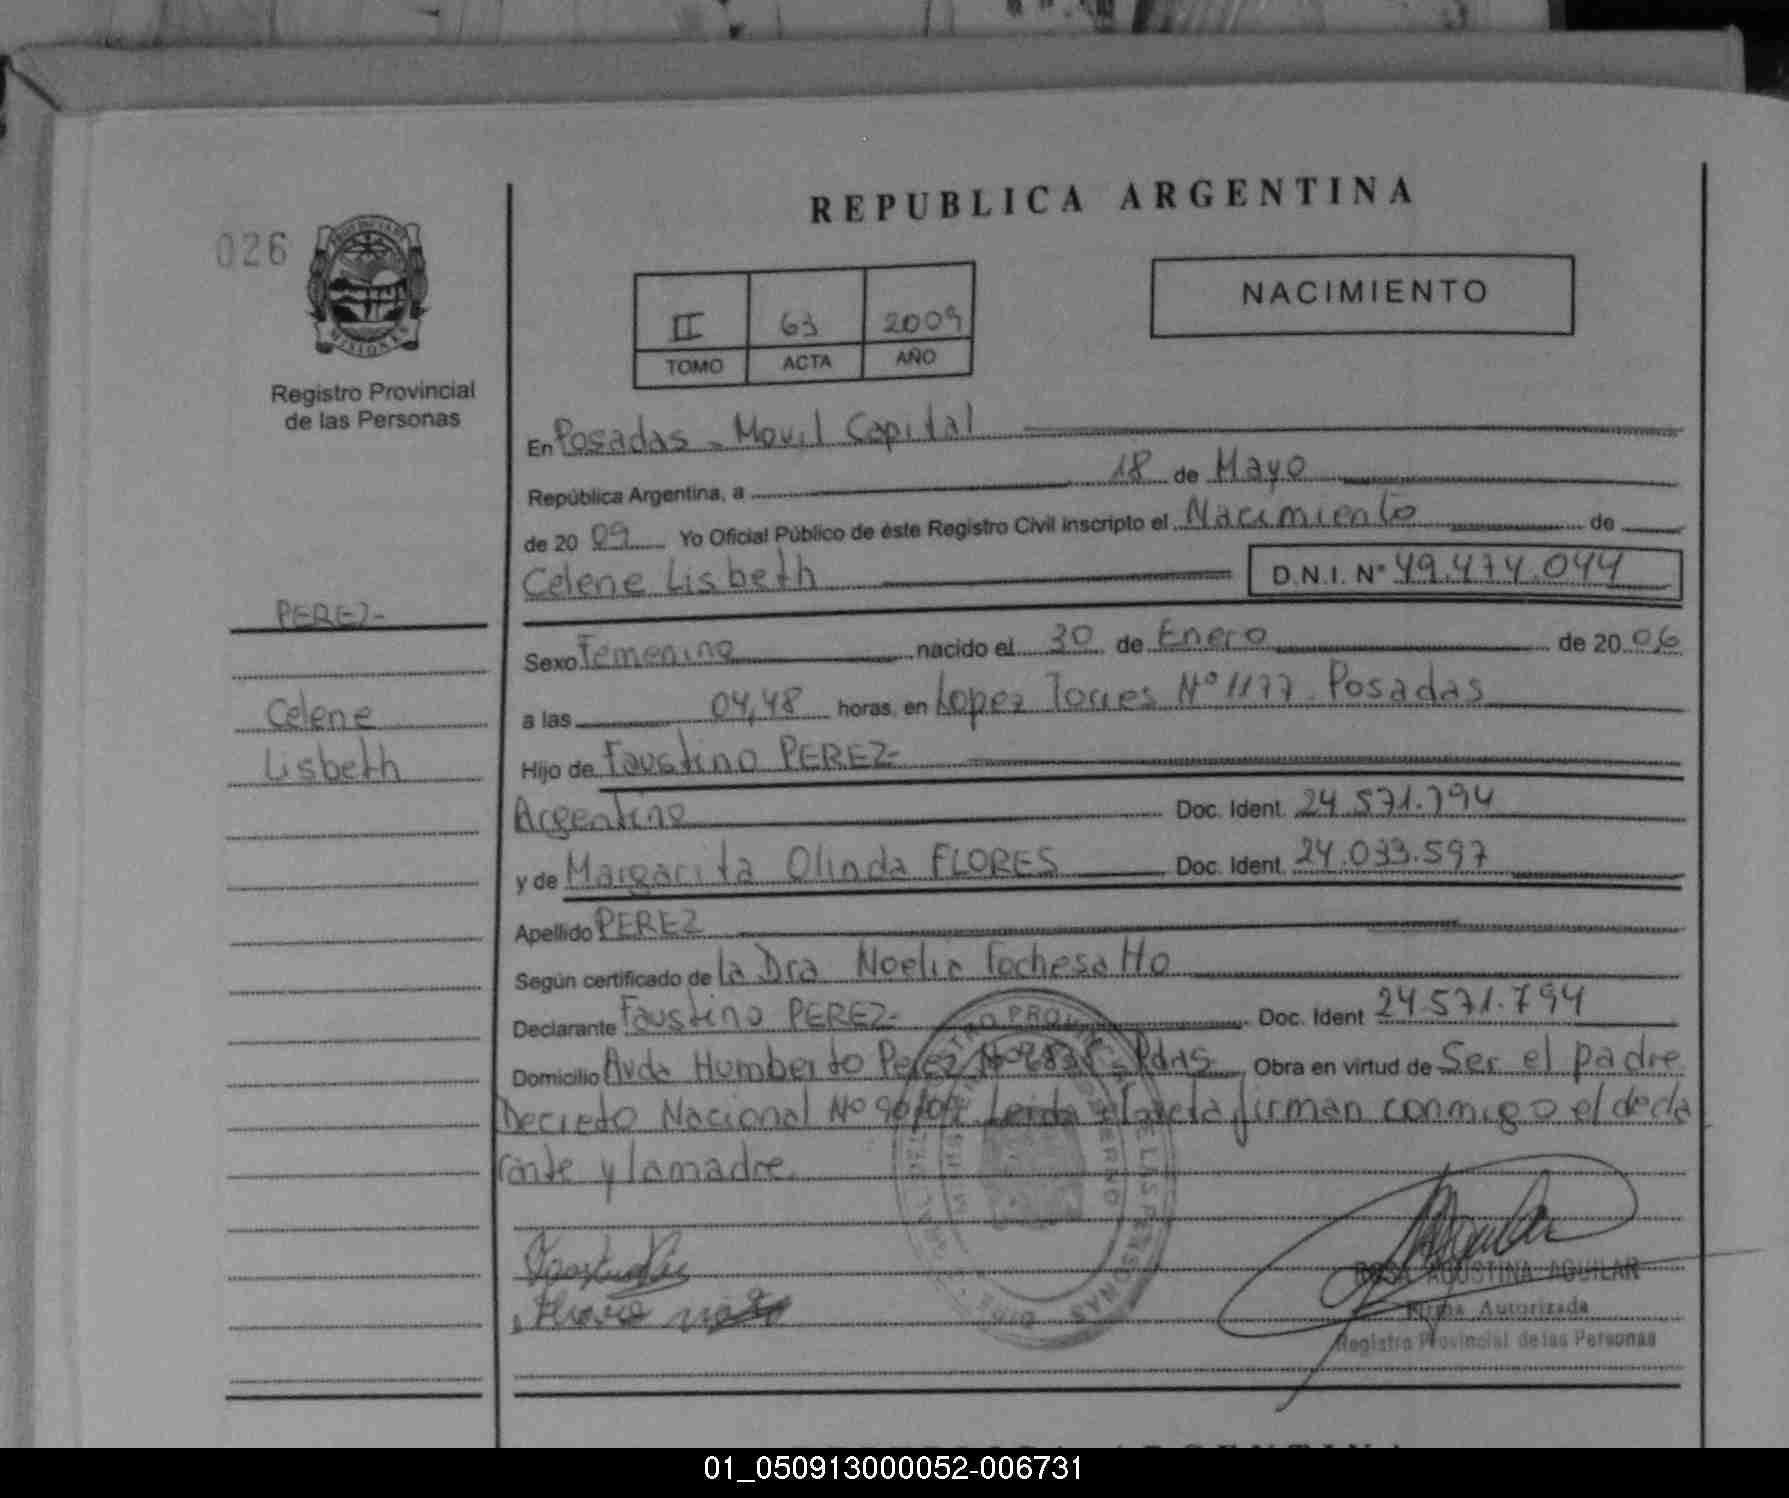 REPUBLICA ARGENTINA
026
NACIMIENTO
II 63 2009
TOMO ACTA AÑO
MISIONES
Registro Provincial
de las Personas
En Posadas - Movil Capital
República Argentina, a 18 de Mayo
de 20 09 Yo Oficial Público de éste Registro Civil inscripto el Nacimiento de
Celene Lisbeth D.N.I. Nº 49.474.044
PEREZ-
Celene
Lisbeth
Sexo Femenino nacido el 30 de Enero de 20 06
a las 04,48 horas, en Lopez Torres Nº 1177 Posadas
Hijo de Faustino PEREZ-
Argentino Doc. Ident. 24.571.794
y de Margarita Olinda FLORES Doc. Ident. 24.033.597
Apellido PEREZ
Según certificado de la Dra Noelia Fochesatto
Declarante Faustino PEREZ- Doc. Ident 24.571.794
Domicilio Avda Humberto Perez Pdas Obra en virtud de Ser el padre
Decreto Nacional Nº Leida el acta firman conmigo el decla
rante y la madre.
ROSA AGUSTINA AGUILAR
Firma Autorizada
Registro Provincial de las Personas
01_050913000052-006731